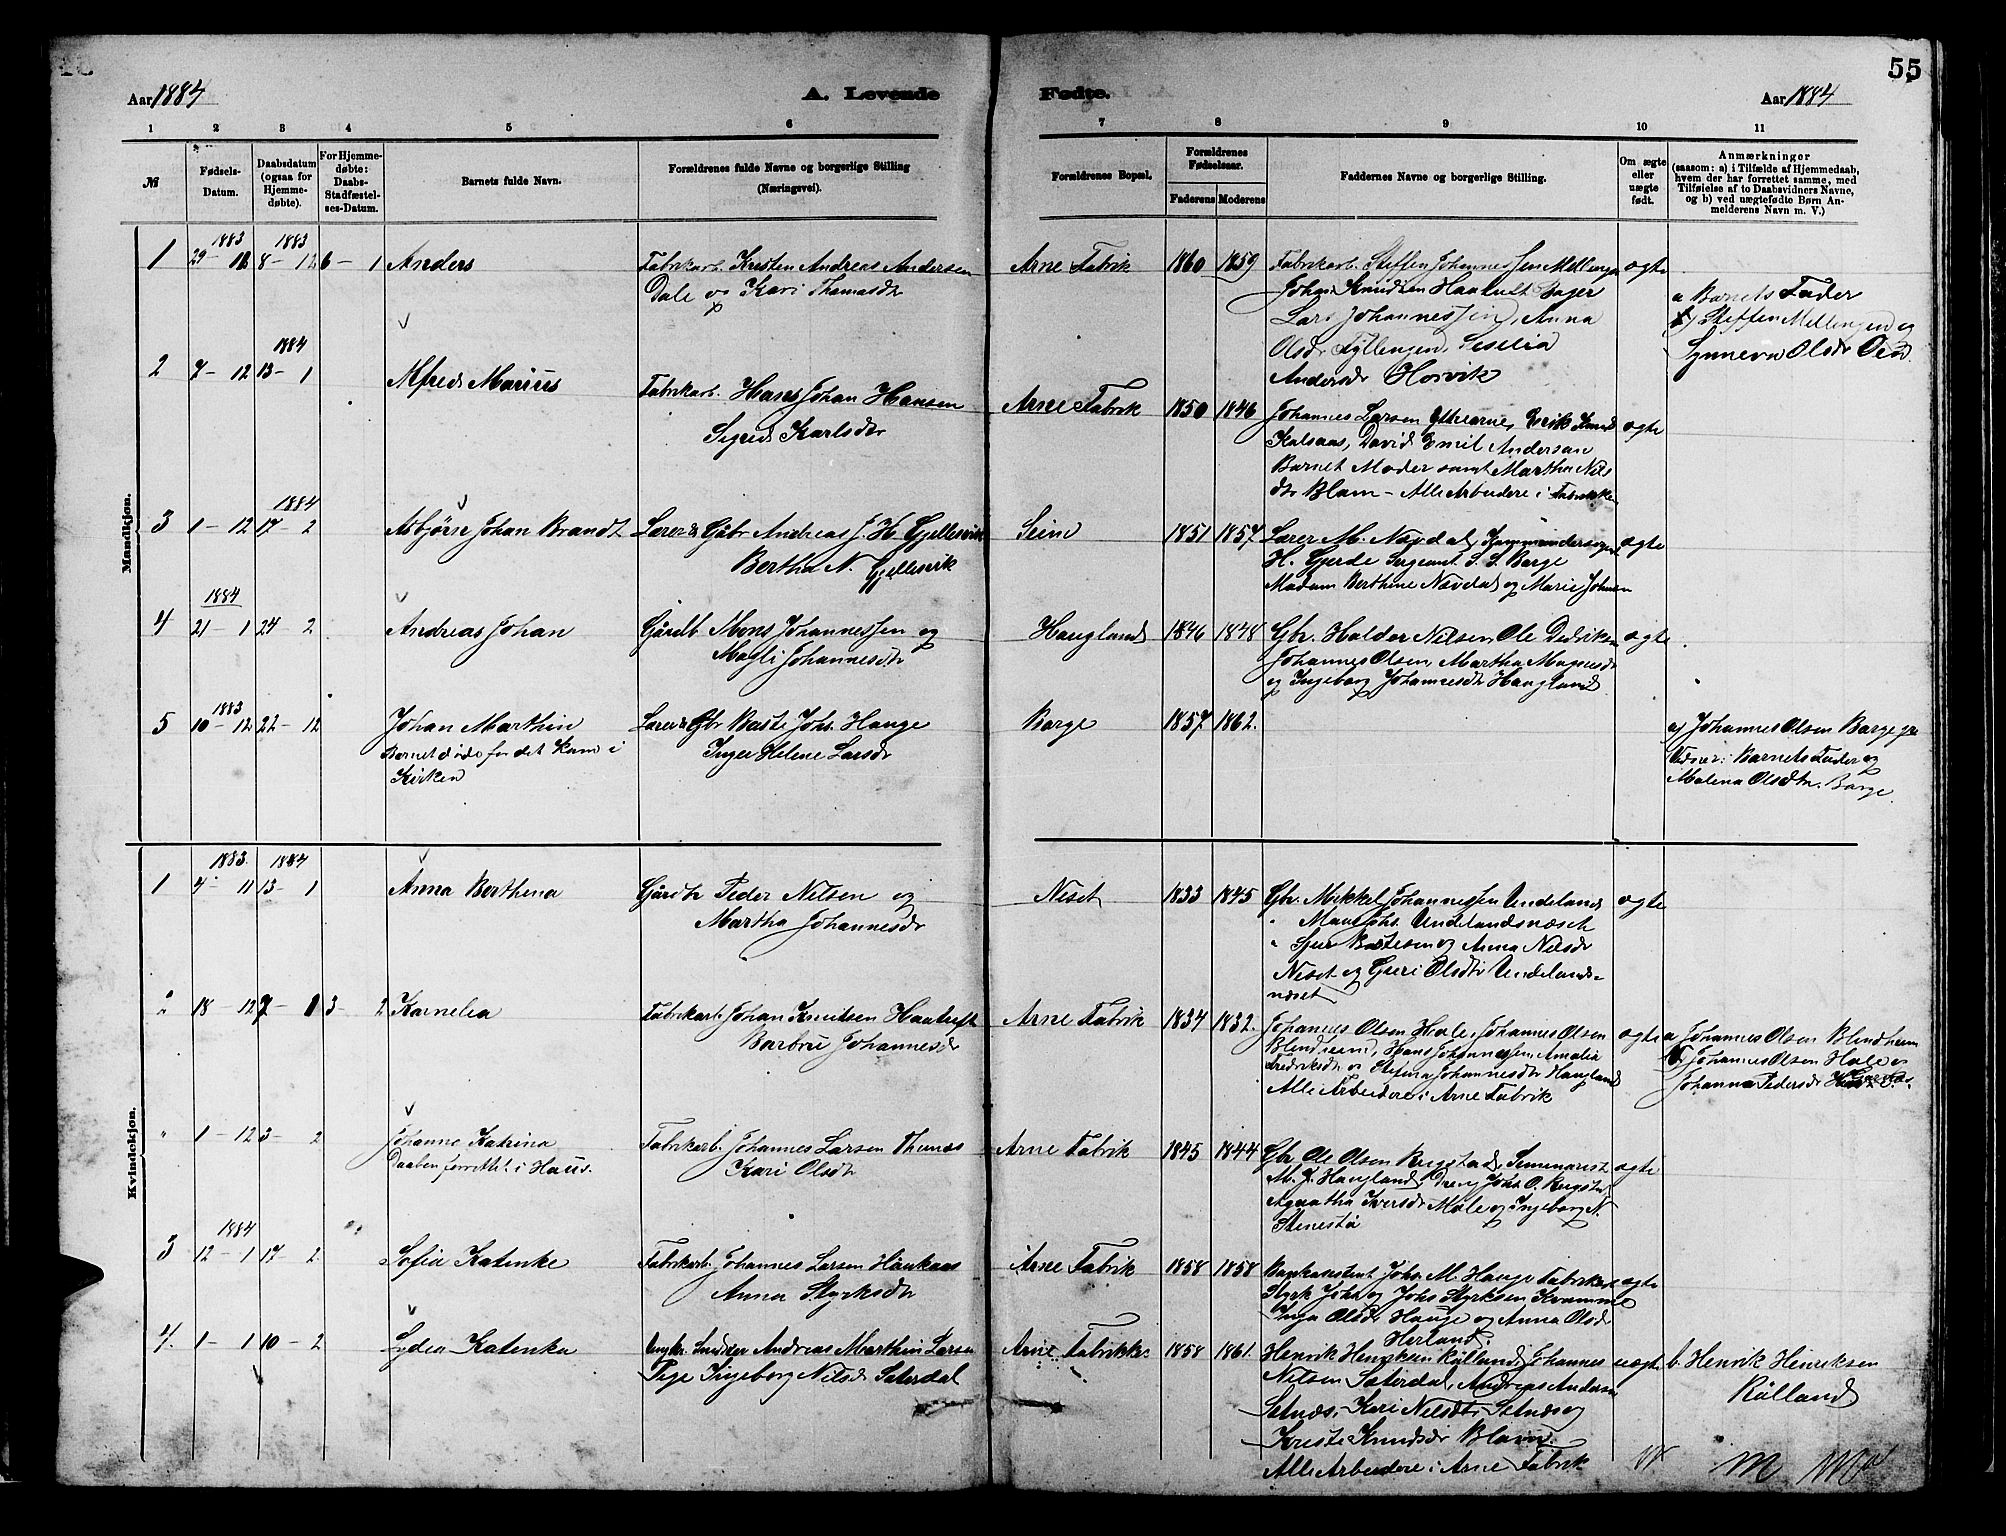 55
Aar 1884
A. Levende
Fødte.
Aar 1884
1 2 3 4 5 6 7 8 9 10 11
№
Fødsels-
Datum.
Daabsdatum
(ogsaa for
Hjemme-
døbte).
For Hjemme-
døbte:
Daabs-
Stadfæstel-
ses-Datum.
Barnets fulde Navn.
Forældrenes fulde Navne og borgerlige Stilling
(Næringsvei).
Forældrenes Bopæl.
Forældrenes
Fødselsaar.
Faderens Moderens
Faddernes Navne og borgerlige Stilling.
Om ægte
eller
uægte
født.
Anmærkninger
(saasom: a) i Tilfælde af Hjemmedaab,
hvem der har forrettet samme, med
Tilføielse af to Daabsvidners Navne,
og b) ved uægtefødte Børn An-
melderens Navn m. V.)
Mandkjøn.
1883 1883
1 29- 8-12 6-1 Anders
Fabrikarb. Kristen Andreas Andersen
Dale og Kari Thomasdtr
Arne Fabrik 1860 1859
Fabrikarb. Steffen Johannessen Mellingen
Johan Knudsen Haatuft Bager
Lars Johannessen, Anna
Olsdr Fyllingen, Sesilia
Andersdr Horvik
ægte
a Barnets Fader
b) Steffen Mellingen og
Synneva Olsdr
1884
2 7-12 13-1 Alfred Marius
Fabrikarb. Hans Johan Hansen
Sigrid Karlsdtr
Arne Fabrik 1850 1846
Johannes Larsen Ytrearne, Erik
Kalsaas, David Emil Andersen
Barnet Moder samt Martha Nils
dtr Blam - Alle Arbeidere i Fabrikken
ægte
1884
3 1-12 17-2 Asbjørn Johan Brandt
Lærer & Gbr Andreas J. H. Gjellesvik
Bertha N. Gjellesvik
Seim 1851 1857
Lærer M. Nævdal,
H. Gjerde Sergeant S. S. Borge
Madam Berthine Nævdal og Marie Johnsen
ægte
1884
4 21-1 24-2 Andreas Johan
Gårdb Mons Johannessen og
Magli Johannesdtr
Haugland 1846 1848
Gbr. Halder Nilsen, Ole Dedriksen
Johannes Olsen, Martha Magnesdr
og Ingeborg Johannesdtr Haugland
ægte
1883
5 10-12 22-12 Johan Marthin
Barnet døde før det kom i
Kirken
Lærer & Gbr Baste Johs. Hauge
Inger Helene Larsdr
Borge 1857 1862.
a) Johannes Olsen Borge
Vidner: Barnets Fader og
Malena Olsdtr. Borge
Kvindekjøn.
1883. 1884
1 4-11 13-1 Anna Berthena
Gårdbr Peder Nilsen og
Martha Johannesdr
Neset 1833 1845
Gbr. Mikkel Johannessen Undeland
" Mons Johs. Undelandsnæset
" Sjur Bastesen og Anna Nilsdr
Neset og Guri Olsdtr Undelands-
næset
ægte
" 18-12 7-1 3-2 Kornelia
Fabrikarb. Johan Knutsen Haatuft
Barbru Johannesdr
Arne Fabrik 1834 1832.
Johannes Olsen Hole, Johannes Olsen
Blendheim, Hans Johannessen, Amalia
Fredriksdtr og Stefina Johannesdtr Haugland
Alle Arbeidere i Arne Fabrik
ægte
a Johannes Olsen Blindheim
b Johannes Olsen Hole og
Johanna Pedersdr
" 1-12 3-2 Johanne Katrina
Daaben forrettet i Haus.
Fabrikarb. Johannes Larsen Thunes
Kari Olsdtr
Arne Fabrik 1845 1844
Gbr Ole Olsen Rugstad, Seminarist
M. J. Haugland, Dreng Johs. O. Rugstad
Agaatha Iversdr Mæle og Ingeborg N.
Stenestø
ægte
1884
3 12-1 17-2 Sofia Katinke
Fabrikarb. Johannes Larsen Haukaas
Anna Styrksdtr
Arne Fabrik 1858 1858
Johs. M. Hauge Fabrikarb
Styrk Johs og Johs Styrksen Kvamme
Inga Olsdr Hauge og Anna Olsdr
Herland.
ægte
4. 1-1 10-2 Lydia Katinka
Ungkr. Smedder Andreas Marthin Larsen
Pige Ingeborg Nilsdr Sæterdal
Arne Fabrikke 1858 1861.
Henrik Henriksen Rålland, Johannes
Nilsen Sæterdal, Andreas Andersen
Sætnæs, Kari Nilsdtr Sætnæs og
Kriste Knudsdr Blam.
Alle Arbeidere i Arne Fabrik
uægte
b. Henrik Hinriksen
Rålland